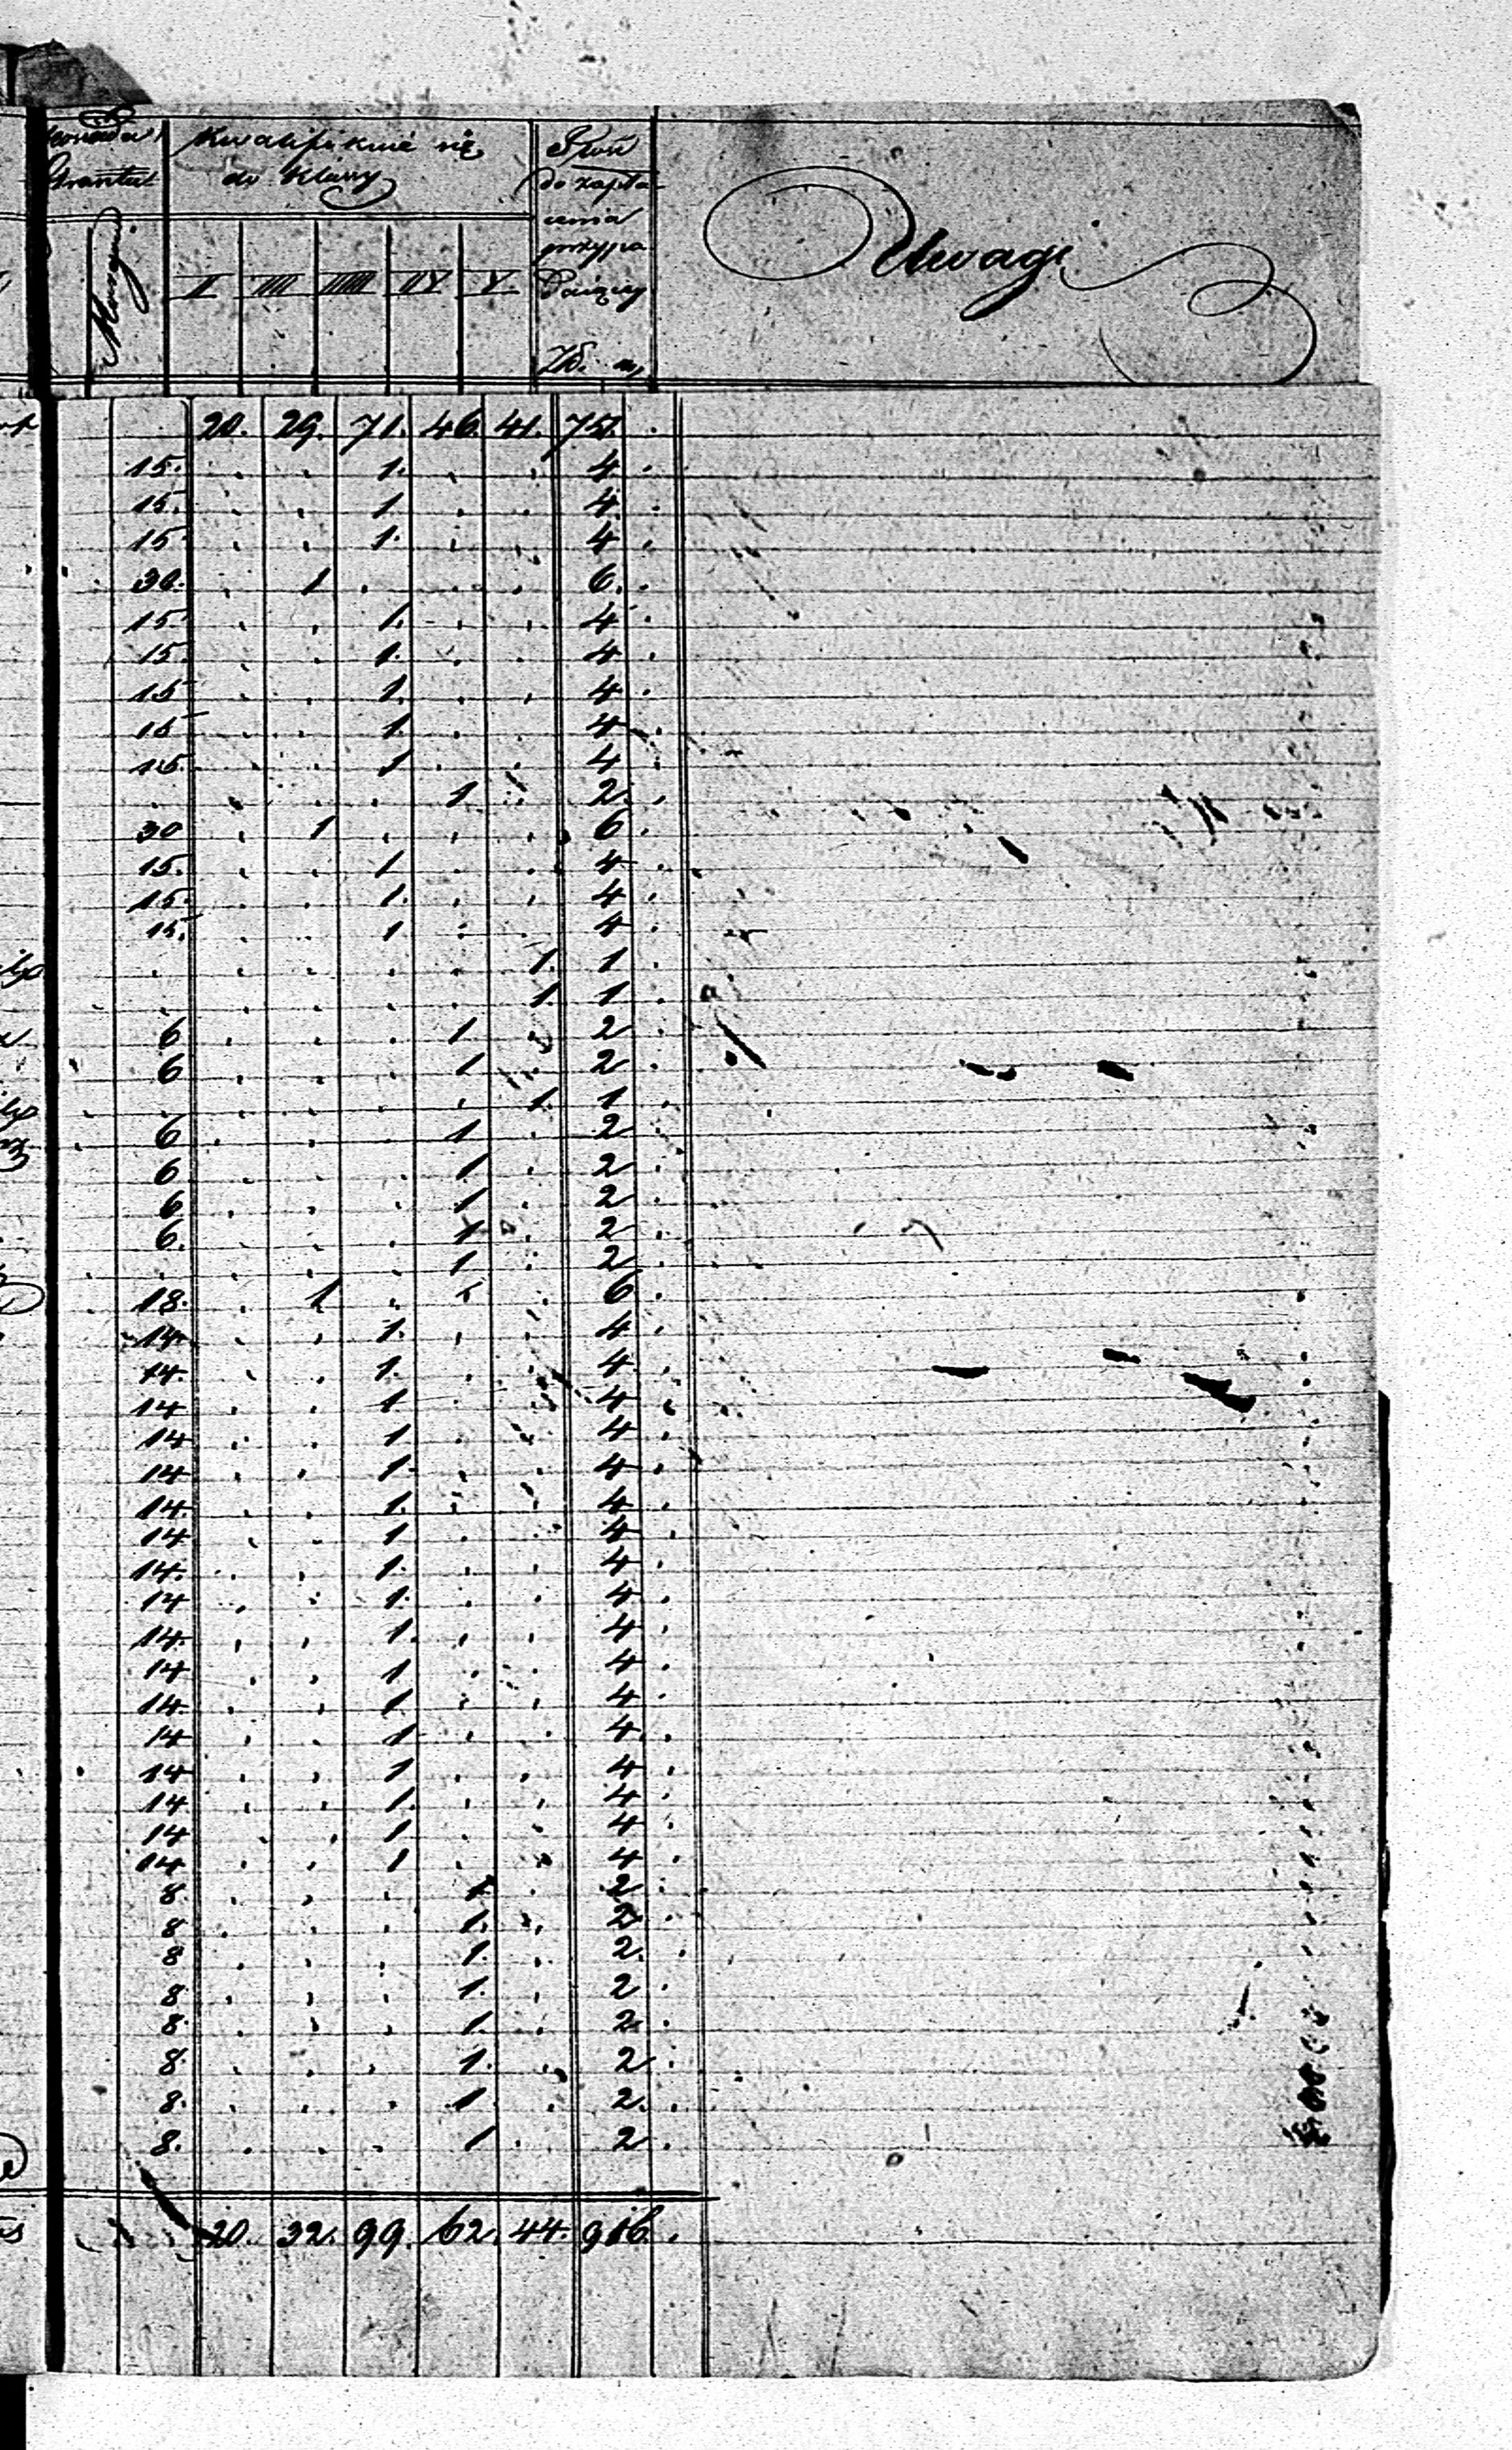 Gruntu
Kwalifikuie się
do Klassy
do zapła-
cenia
przypa
daiącey
Uwagi
Morgi
II III IIII IV V.
Zł. gr.
20. 29. 71. 46. 41. 751. .
15. . . 1. . . 4 .
15. . . 1 . . 4. .
15. . . 1. . . 4 .
30. . 1 . . . 6. .
15. . . 1. . . 4 .
15. . . 1. . . 4 .
15 . . 1. . . 4 .
15 . . 1. . . 4 .
15 . . 1 . . 4 .
. . . . 1 . 2. .
30 . 1 . . . 6 .
15. . . 1 . . 4 .
15. . . 1. . . 4 .
15. . . 1 . . 4 .
. . . . . 1. 1 .
. . . . . 1. 1 .
6 . . . 1 . 2 .
6 . . . 1 . 2 .
. . . . . 1. 1 .
6 . . . 1 . 2 .
6 . . . 1 . 2 .
6 . . . 1 . 2 .
6. . . . 1 . 2 .
. . . . 1 . 2 .
18. . 1 . . . 6 .
14. . . 1. . . 4 .
14. . . 1. . . 4. .
14 . . 1 . . 4 .
14 . . 1 . . 4 .
14 . . 1. . . 4 .
14. . . 1. . . 4 .
14 . . 1 . . 4 .
14. . . 1. . . 4 .
14 . . 1. . . 4 .
14. . . 1. . . 4 .
14 . . 1 . . 4 .
14. . . 1. . . 4 .
14 . . 1 . . 4. .
14 . . 1 . . 4 .
14 . . 1. . . 4 .
14 . . 1 . . 4 .
14 . . 1 . . 4 .
8. . . . 1 . 2 .
8 . . . 1. . 2 .
8 . . . 1. . 2. .
8 . . . 1. . 2 .
8. . . . 1. . 2. .
8. . . . 1. . 2 .
8. . . . 1 . 2. .
8. . . . 1 . 2 .
20. 32. 99. 62. 44. 916. .